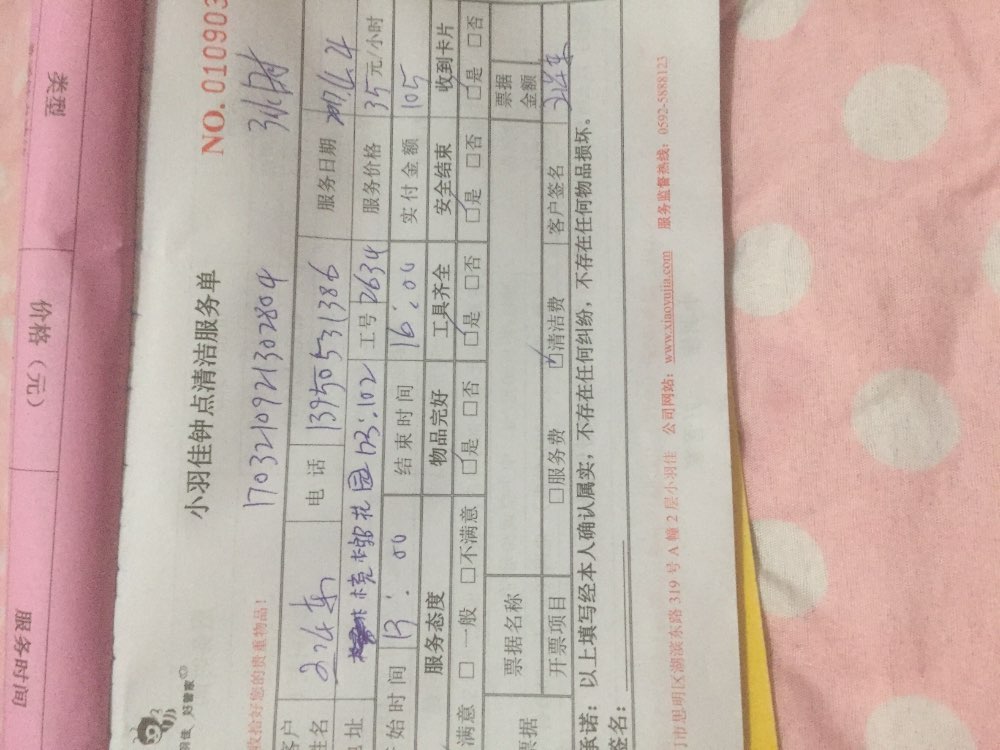 类型
价格（元）
服务时间
好管家
小羽佳钟点清洁服务单
NO. 010903
收拾好您的贵重物品！
1703210921302804
姓名
电话 13950531386 服务日期
址 花园 123:102 工号 2634 服务价格 35元/小时
始时间 13:00 结束时间 16:00 实付金额 105
服务态度 物品完好 工具齐全 安全结束 收到卡片
满意 □一般 □不满意 □是 □否 □是 □否 □是 □否 □是 □否
票据 票据名称 票据金额
开票项目 □服务费 □清洁费 客户签名
承诺：以上填写经本人确认属实，不存在任何纠纷，不存在任何物品损坏。
签名：
门市思明区湖滨东路319号A幢2层小羽佳 公司网站：www.xiaoyujia.com 服务监督热线：0592-5888123